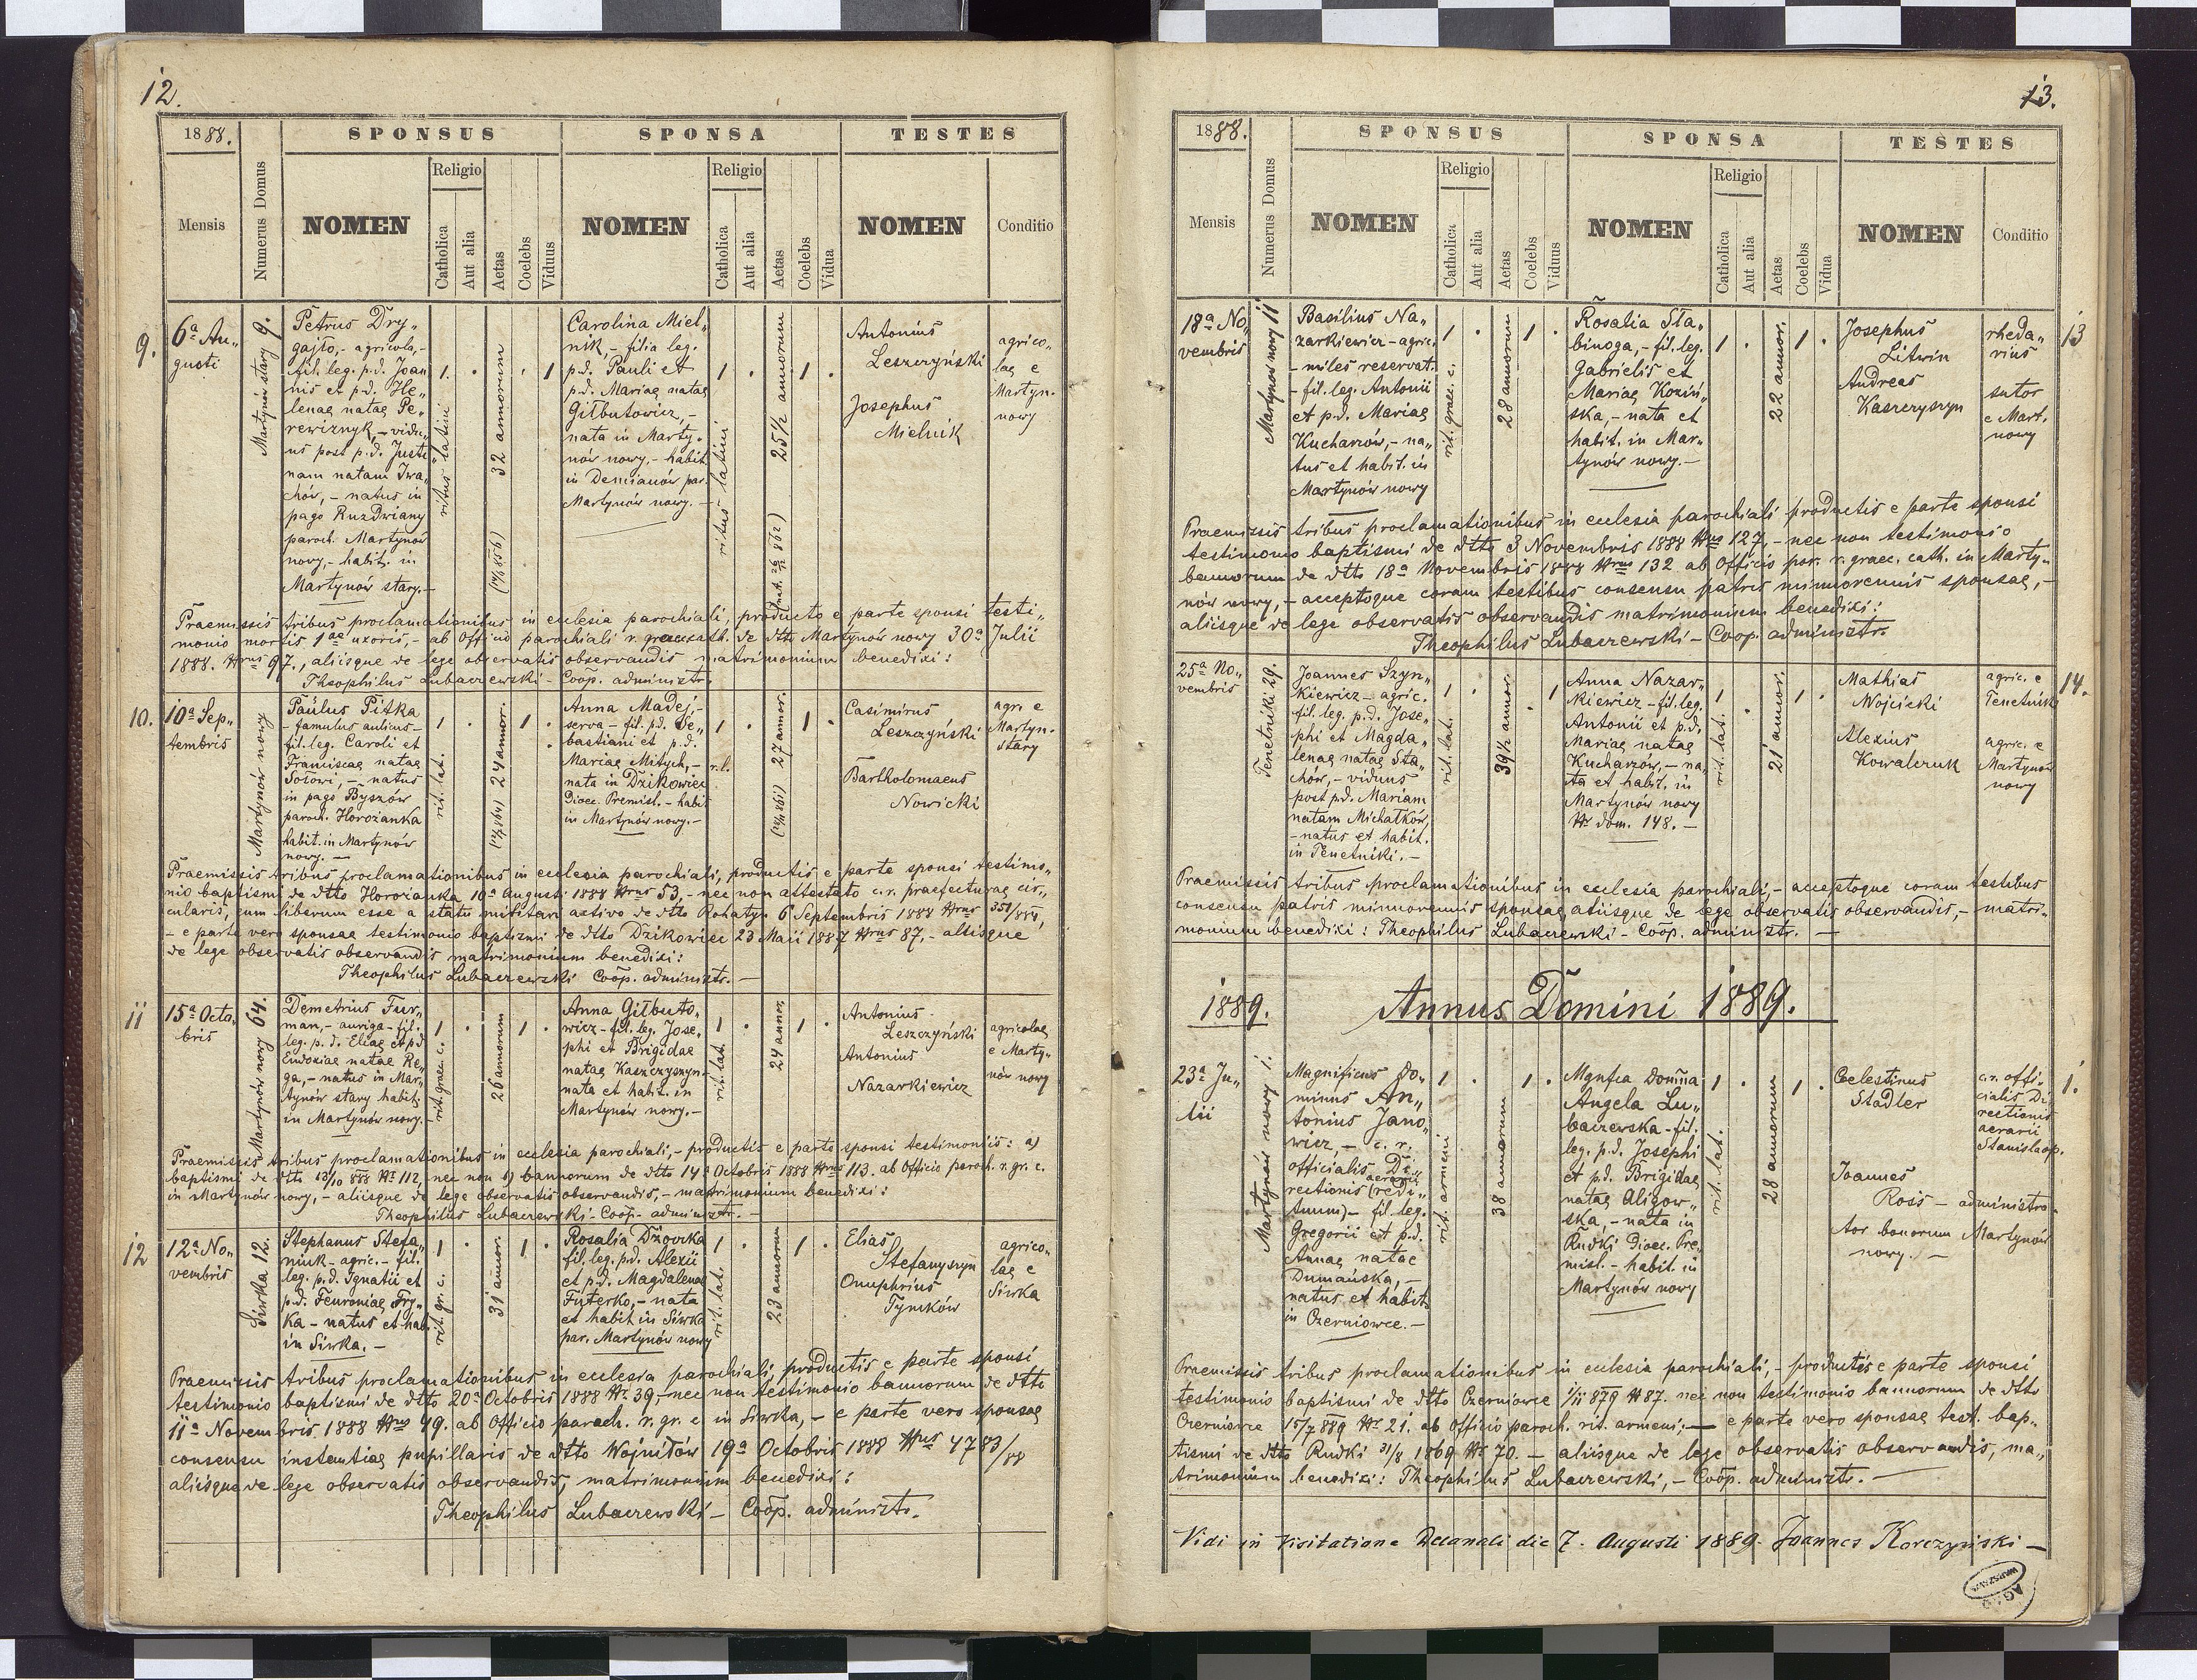 12.
1888.
SPONSUS
SPONSA
TESTES
Mensis
Numerus Domus
NOMEN
Religio
Catholica
Aut alia
Aetas
Coelebs
Viduus
NOMEN
Religio
Catholica
Aut alia
Aetas
Coelebs
Vidua
NOMEN
Conditio
9.
6a Au„
gusti
Martynów stary 9.
Petrus Dry„
gajło,- agricola,-
fil. leg. p.d. Joan
nis et p.d. He„
lenae natae Pe„
rewiznyk,- vidu„
us post p.d. Justi
nam natam Iwa„
chów,- natus in
pago Ruzdwiany
paroch. Martynów
nowy,- habit. in
Martynów stary.-
1.
ritus latini
32 annorum
1
Carolina Miel„
nik,- filia leg.
p.d. Pauli et
p.d. Mariae natae
Giłbutowicz,-
nata in Marty„
nów nowy,- habit.
in Demianów par.
Martynów nowy.-
1
ritus latini
25 1/2 annorum
1
Antonius
Leszczyński
Josephus
Mielnik
agrico„
lae e
Martyn.
nowy
Praemissis tribus proclamationibus in eclesia parochiali, producto e parte sponsi testi„
monio mortis 1ae uxoris,- ab Officio parochiali r. graec. cath. de dtto Martynów nowy 30a Julii
1888. Nrus 97., aliisque de lege observatis observandis matrimonium benedixi:
Theophilus Lubaczewski - Coop. administr.
10.
10a Sep„
tembris
Martynów nowy
Paulus Pitka
- famulus aulicus-
fil. leg. Caroli et
Franciscae natae
Sołowi,- natus
in pago Byszów
paroch. Horożanka
habit. in Martynów
nowy.-
1
rit. lat.
24 annor.
1
Anna Madej,-
serva - fil. p.d. Se„
bastiani et p.d.
Mariae Mitych,-
nata in Dzikowiec
Dioec. Premisl.- habit
in Martynów nowy.-
1
r.l.
27 annor.
1
Casimirus
Leszczyński
Bartholomaeus
Nowicki
agr. e
Martyn.
stary
Praemissis tribus proclamationibus in ecclesia parochiali, productis e parte sponsi testimo„
nio baptismi de dtto Horożanka 10a Augusti 1888 Nrus 53,- nec non attestato c.r. praefecturae cir„
cularis, eum liberum esse a statu militari activo de dtto Rohatyn 6 Septembris 1888 Nrus 351/888,
- e parte vero sponsae testimonio baptismi de dtto Dzikowiec 23 Maii 1887 Nrus 87,- aliisque
de lege observatis observandis matrimonium benedixi:
Theophilus Lubaczewski Coop. administr.-
11
15a Octo„
bris
Martynów nowy 64.
Demetrius Fur„
man,- auriga - fil.
leg. p.d. Eliae et p.d
Eudoxiae natae Re„
ga,- natus in Mar„
tynów stary habit.
in Martynów nowy.-
1
rit. graec. c.
26 annorum
1
Anna Giłbuto„
wicz - fil. leg. Jose„
phi et Brigidae
natae Kaszczyszyn-
nata et habit. in
Martynów nowy.-
1
rit. lat.
24 annor.
1
Antonius
Leszczyński
Antonius
Nazarkiewicz
agricolae
e Marty„
nów nowy
Praemissis tribus proclamationibus in ecclesia parochiali,- productis e parte sponsi testimoniis: a)
baptismi de dtto 13/10 888 Nr 112, nec non b) bannorum de dtto 14a Octobris 1888 Nrus 113. ab Officio paroch. r. gr. c.
in Martynów nowy,- aliisque de lege observatis observandis,- matrimonium benedixi:
Theophilus Lubaczewski - Coop. administr.-
12
12a No„
vembris
Siwka 12.
Stephanus Stefa„
niuk - agric.- fil.
leg. p.d. Ignatii et
p.d. Fevroniae Fry„
ka - natus et hab.
in Siwka.-
1
rit. gr. c.
31 annor.
1
Rosalia Dżovka
fil. leg. p.d. Alexii
et p.d. Magdalenae
Futerko,- nata
et habit in Siwka
par. Martynów nowy
1
rit. lat.
23 annorum
1
Elias
Stefanyszyn
Onuphrius
Tymków
agrico„
lae e
Siwka
Praemissis tribus proclamationibus in ecclesia parochiali, productis e parte sponsi
testimonio baptismi de dtto 20a Octobris 1888 Nr. 39,- nec non testimonio bannorum de dtto
11a Novembris 1888 Nrus 49. ab Officio paroch. r. gr. c. in Siwka,- e parte vero sponsae
consensu instantiae pupillaris de dtto Wojniłów 19a Octobris 1888 Nrus 4783/88
aliisque de lege observatis observandis, matrimonium benedixi:
Theophilus Lubaczewski - Coop. administr.
13.
1888.
SPONSUS
SPONSA
TESTES
Mensis
Numerus Domus
NOMEN
Religio
Catholica
Aut alia
Aetas
Coelebs
Viduus
NOMEN
Religio
Catholica
Aut alia
Aetas
Coelebs
Vidua
NOMEN
Conditio
18a No„
vembris
Martynów nowy 11
Basilius Na„
zarkiewicz - agric.
- miles reservat.
- fil. leg. Antonii
et p.d. Mariae
Kucharzów,- na„
tus et habit. in
Martynów nowy
1
rit. graec. c.
28 annorum
1
Rosalia Sta„
binoga,- fil. leg.
Gabrielis et
Mariae Koziń„
ska,- nata et
habit. in Mar„
tynów nowy.-
1
22 annor.
1
Josephus
Litwin
Andreas
Kaszczyszyn
rheda„
rius
sutor
e Mart.
nowy
13
Praemissis tribus proclamationibus in ecclesia parochiali productis e parte sponsi
testimonio baptismi de dtto 3 Novembris 1888 Nrus 127,- nec non testimonio
bannorum de dtto 18a Novembris 1888 Nrus 132 ab Officio par. r. graec. cath. in Marty„
nów nowy,- acceptoque coram testibus consensu patris minorennis sponsae,-
aliisque de lege observatis observandis matrimonium benedixi:
Theophilus Lubaczewski - Coop. administr.
25a No„
vembris
Tenetniki 29.
Joannes Szyn„
kiewicz - agric.
fil. leg. p.d. Jose„
phi et Magda„
lenae natae Sta„
chów,- viduus
post p.d. Mariam
natam Michałków
- natus et habit.
in Tenetniki.-
1
rit. lat.
39 1/2 annor.
1
Anna Nazar„
kiewicz - fil. leg.
Antonii et p.d.
Mariae natae
Kucharzów,- na„
ta et habit. in
Martynów nowy
Nr dom. 148.-
1
rit. lat.
21 annor.
1
Mathias
Wojcicki
Alexius
Kowalczuk
agric. e
Tenetniki
agric. e
Martynów
nowy
14.
Praemissis tribus proclamationibus in ecclesia parochiali,- acceptoque coram testibus
consensu patris minorennis sponsae aliisque de lege observatis observandis,- matri„
monium benedixi: Theophilus Lubaczewski - Coop. administr.-
1889.
Annus Domini 1889.
23a Ju„
lii
Martynów nowy 1.
Magnificus Do„
minus An„
tonius Jano„
wicz,- c.r.
officialis Di„
rectionis aerarii (redi„
tuum) - fil. leg.
Gregorii et p.d.
Annae natae
Dumańska,-
natus et habit.
in Czerniowce.-
1
rit. armeni
38 annorum
1
Mgnfca Domina
Angela Lu„
baczewska - fil.
leg. p.d. Josephi
et p.d. Brigidae
natae Aligow„
ska,- nata in
Rudki Dioec. Pre„
misl.- habit. in
Martynów nowy
1
rit. lat.
28 annorum
1
Celestinus
Stadler
Joannes
Ross - administra„
tor bonorum Martynów
nowy.-
c.r. offi„
cialis Di„
rectionis
aerarii
Stanislaop.
1.
Praemissis tribus proclamationibus in ecclesia parochiali,- productis e parte sponsi
testimonio baptismi de dtto Czerniowce 1/11 879 N 87. nec non testimonio bannorum de dtto
Czerniowce 15/7 889 Nr 21. ab Officio paroch. rit. armeni;- e parte vero sponsae test. bap„
tismi de dtto Rudki 31/8 1869 Nr 70.- aliisque de lege observatis observandis, ma„
trimonium benedixi: Theophilus Lubaczewski,- Coop. administr.-
Vidi in Visitatione Decanali die 7. Augusti 1889. Joannes Korczyński -
AGAD
WARSZAWA